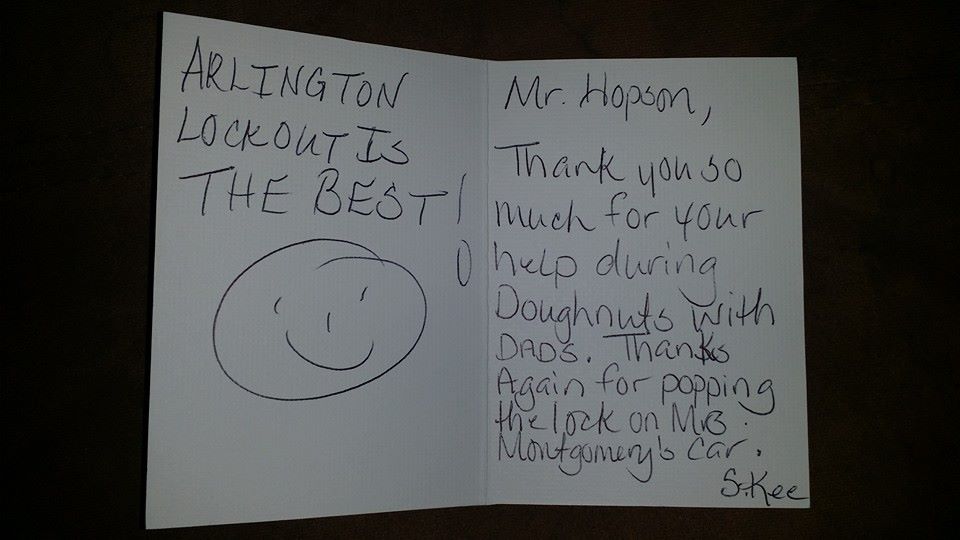 ARLINGTON
LOCKOUT IS
THE BEST!
Mr. Hopson,
Thank you so
much for your
help during
Doughnuts with
DADS. Thanks
Again for popping
the lock on Mrs.
Montgomery's car.
S. Kee